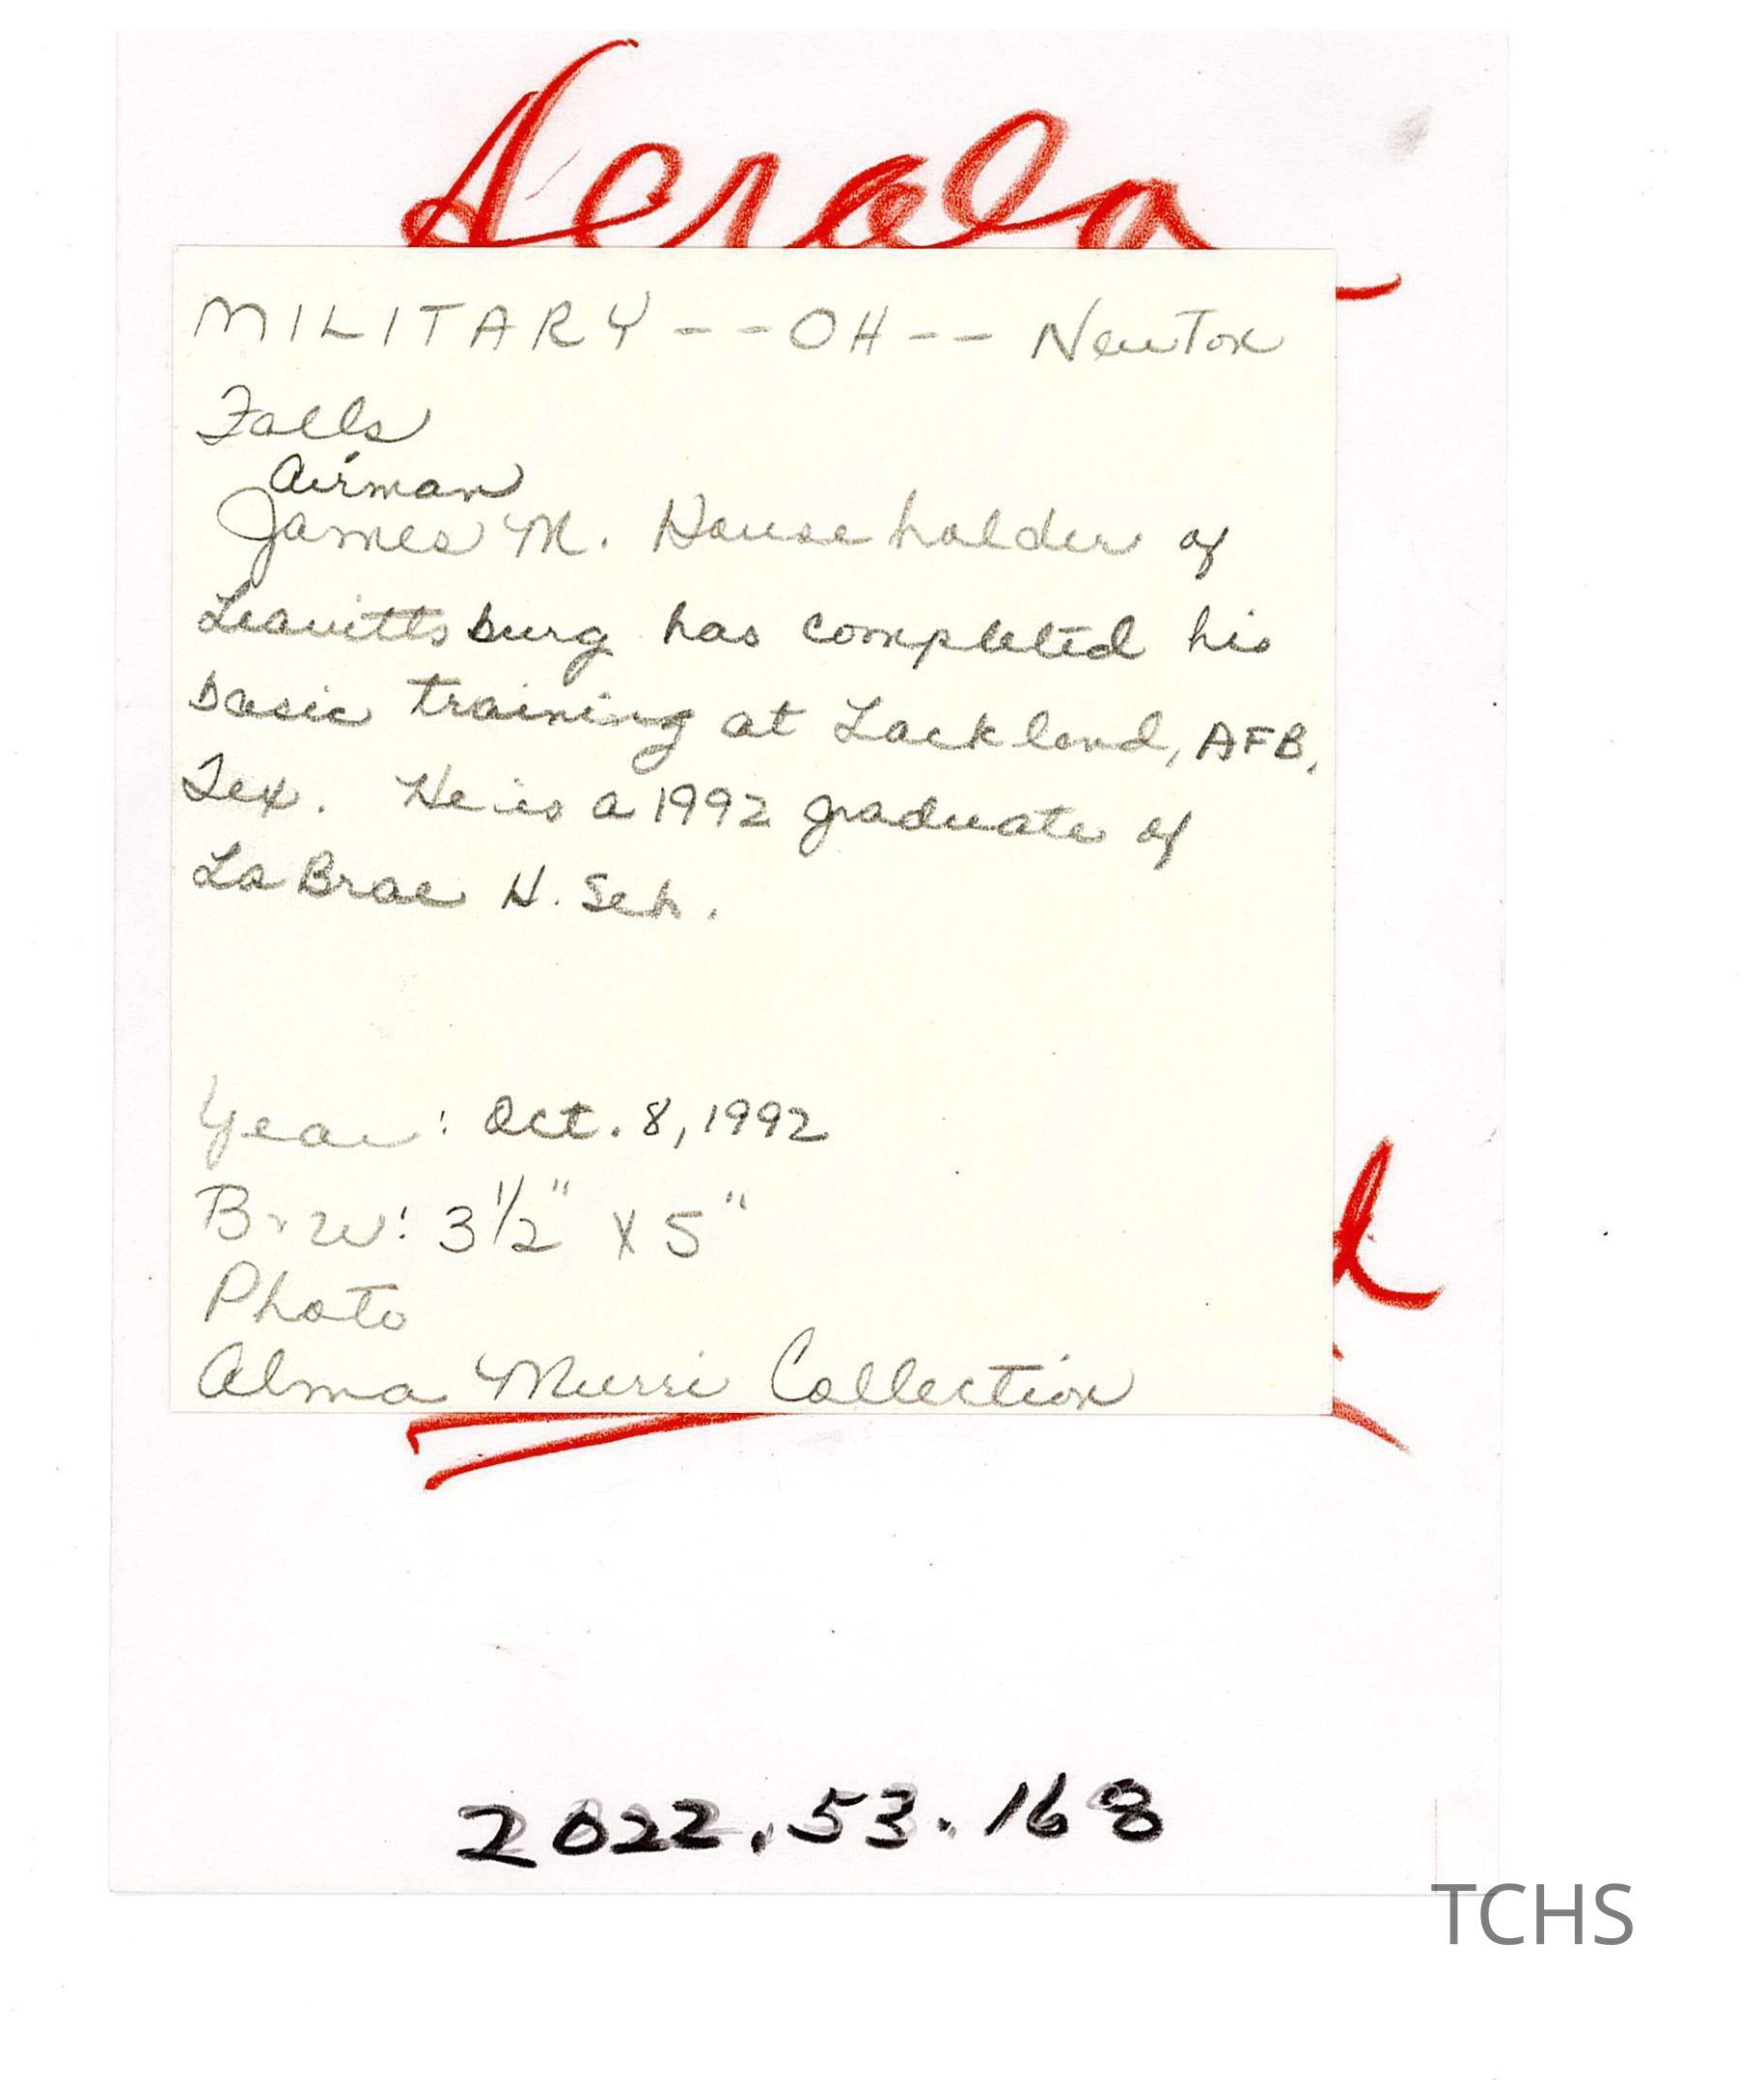 Herald
MILITARY--OH--Newton
Falls
Airman
James M. Householder of
Leavittsburg has completed his
basic training at Lackland, AFB,
Tex. He is a 1992 graduate of
LaBrae H. Sch.
Year: Oct. 8, 1992
B+W: 3 1/2" X 5"
Photo
Alma Murri Collection
2022.53.168
TCHS